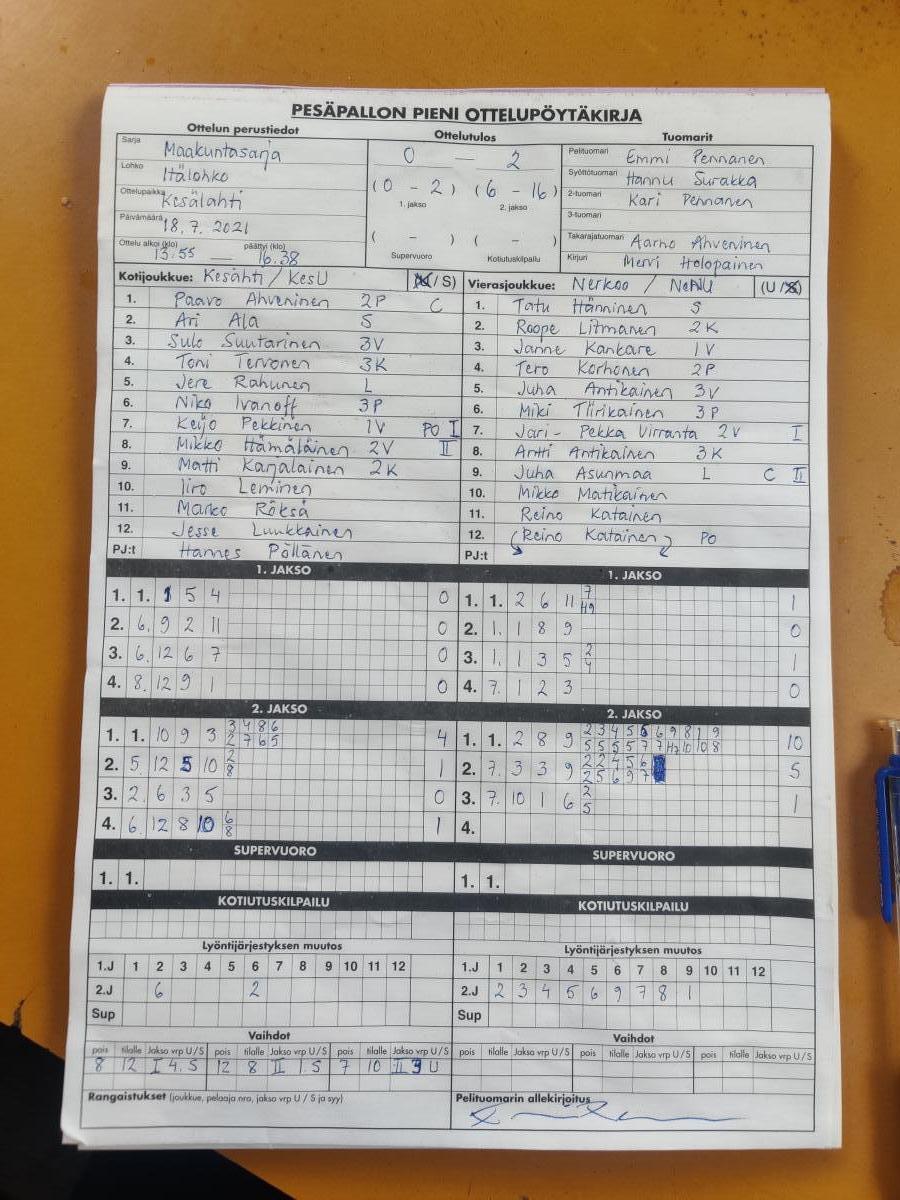 PESÄPALLON PIENI OTTELUPÖYTÄKIRJA
Ottelun perustiedot Ottelutulos Tuomarit
Sarja Maakuntasarja
Lohko Itälohko
Ottelupaikka Kesälahti
Päivämäärä 18.7.2021
Ottelu alkoi (klo) päättyi (klo)
13.55 — 16.38
0 — 2
(0 - 2) (6 - 16)
1. jakso 2. jakso
( - ) ( - )
Supervuoro Kotiutuskilpailu
Pelituomari Emmi Pennanen
Syöttötuomari Hannu Surakka
2-tuomari Kari Pennanen
3-tuomari
Takarajatuomari Aarno Ahveninen
Kirjuri Mervi Holopainen
Kotijoukkue: Kesälahti / KesU (U / S)
1. Paavo Ahveninen 2P C
2. Ari Ala S
3. Sulo Suutarinen 3V
4. Toni Tervonen 3K
5. Jere Rahunen L
6. Niko Ivanoff 3P
7. Keijo Pekkinen 1V PO I
8. Mikko Hämäläinen 2V II
9. Matti Karjalainen 2K
10. Iiro Leminen
11. Marko Röksä
12. Jesse Luukkainen
PJ:t Hannes Pöllänen
Vierasjoukkue: Nerkoo / NeNU (U / S)
1. Tatu Hänninen S
2. Roope Litmanen 2K
3. Janne Kankare 1V
4. Tero Korhonen 2P
5. Juha Antikainen 3V
6. Miki Tiirikainen 3P
7. Jari-Pekka Virranta 2V I
8. Antti Antikainen 3K
9. Juha Asunmaa L C II
10. Mikko Matikainen
11. Reino Katainen
12. (Reino Katainen) PO
PJ:t
1. JAKSO
1. 1. 1 5 4 0
2. 6. 9 2 11 0
3. 6. 12 6 7 0
4. 8. 12 9 1 0
1. JAKSO
1. 1. 2 6 11 7 H9 1
2. 1. 1 8 9 0
3. 1. 1 3 5 2 4 1
4. 7. 1 2 3 0
2. JAKSO
1. 1. 10 9 3 3 4 8 6 4
2 7 6 5
2. 5. 12 5 10 2 8 1
3. 2. 6 3 5 0
4. 6. 12 8 10 6 8 1
2. JAKSO
1. 1. 2 8 9 2 3 4 5 6 6 9 8 1 9 10
5 5 5 5 7 7 H7 10 10 8
2. 7. 3 3 9 2 2 4 5 6 5
2 5 6 9 7
3. 7. 10 1 6 2 5 1
4.
SUPERVUORO
1. 1.
SUPERVUORO
1. 1.
KOTIUTUSKILPAILU
KOTIUTUSKILPAILU
Lyöntijärjestyksen muutos
1.J 1 2 3 4 5 6 7 8 9 10 11 12
2.J 6 2
Sup
Lyöntijärjestyksen muutos
1.J 1 2 3 4 5 6 7 8 9 10 11 12
2.J 2 3 4 5 6 9 7 8 1
Sup
Vaihdot
pois tilalle Jakso vrp U/S pois tilalle Jakso vrp U/S pois tilalle Jakso vrp U/S
8 12 I 4. S 12 8 II 1. S 7 10 II 3 U
Vaihdot
pois tilalle Jakso vrp U/S pois tilalle Jakso vrp U/S pois tilalle Jakso vrp U/S
Rangaistukset (joukkue, pelaaja nro, jakso vrp U / S ja syy)
Pelituomarin allekirjoitus